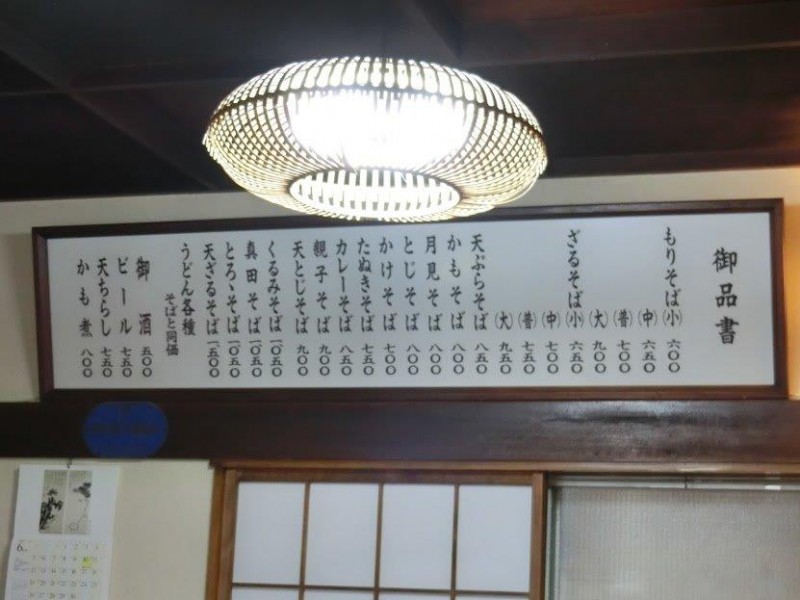 御品書
もりそば(小) 六〇〇
(中) 六五〇
(普) 七〇〇
(大) 九〇〇
ざるそば(小) 六五〇
(中) 七〇〇
(普) 七五〇
(大) 九五〇
天ぷらそば 八五〇
かもそば 八〇〇
月見そば 八〇〇
とじそば 八〇〇
かけそば 七〇〇
たぬきそば 七五〇
カレーそば 八五〇
親子そば 九〇〇
天とじそば 九〇〇
くるみそば 一〇五〇
真田そば 一〇五〇
とろゝそば 一〇五〇
天ざるそば 一五〇〇
うどん各種
そばと同価
御酒 五〇〇
ビール 七五〇
天ちらし 七五〇
かも煮 八〇〇
6